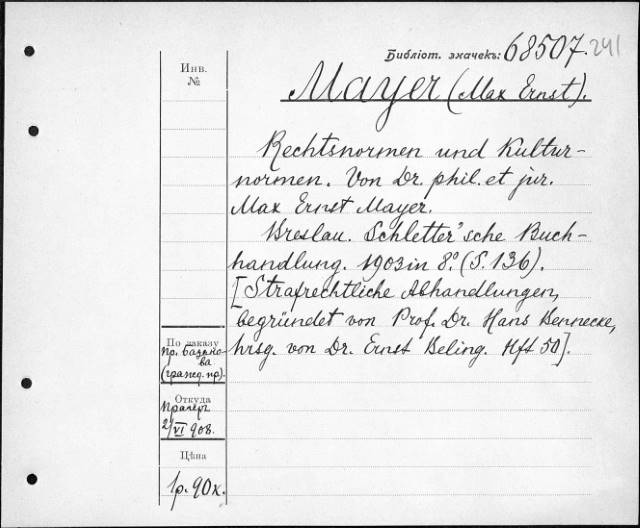 Библіот. значекъ: 68507. 241
Инв.
№
Mayer (Max Ernst).
Rechtsnormen und Kultur-
normen. Von Dr. phil. et jur.
Max Ernst Mayer.
Breslau. Schletter'sche Buch-
handlung. 1903 in 8.° (S. 136).
[Strafrechtliche Abhandlungen,
begründet von Prof. Dr. Hans Bennecke,
hrsg. von Dr. Ernst Beling. Hft 50].
По заказу
пр. Базано-
ва
(гражд. пр).
Откуда
Прагеръ
2/VI 908.
Цѣна
1р. 90к.